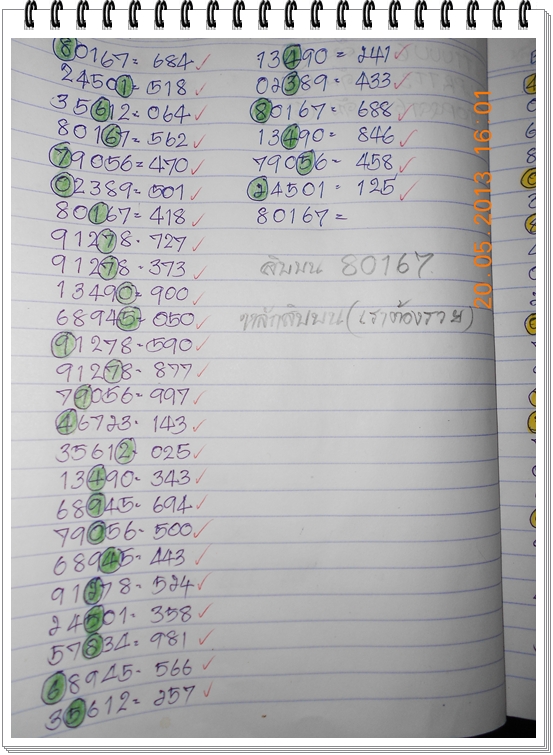 80167= 684
24501= 518
35612= 064
80167= 562
79056= 470
02389= 501
80167= 418
91278- 727
91278- 373
13490= 900
68945= 050
91278- 590
91278- 877
79056- 997
46723- 143
35612- 025
13490- 343
68945- 694
79056- 500
68945- 443
91278- 524
24501- 358
57834- 981
68945- 566
35612= 257
13490 = 241
02389= 433
80167= 688
13490= 846
79056= 458
24501= 125
80167=
สิบบน 80167
หลักสิบบน (เราต้องรวย)
20.05.2013 16:01